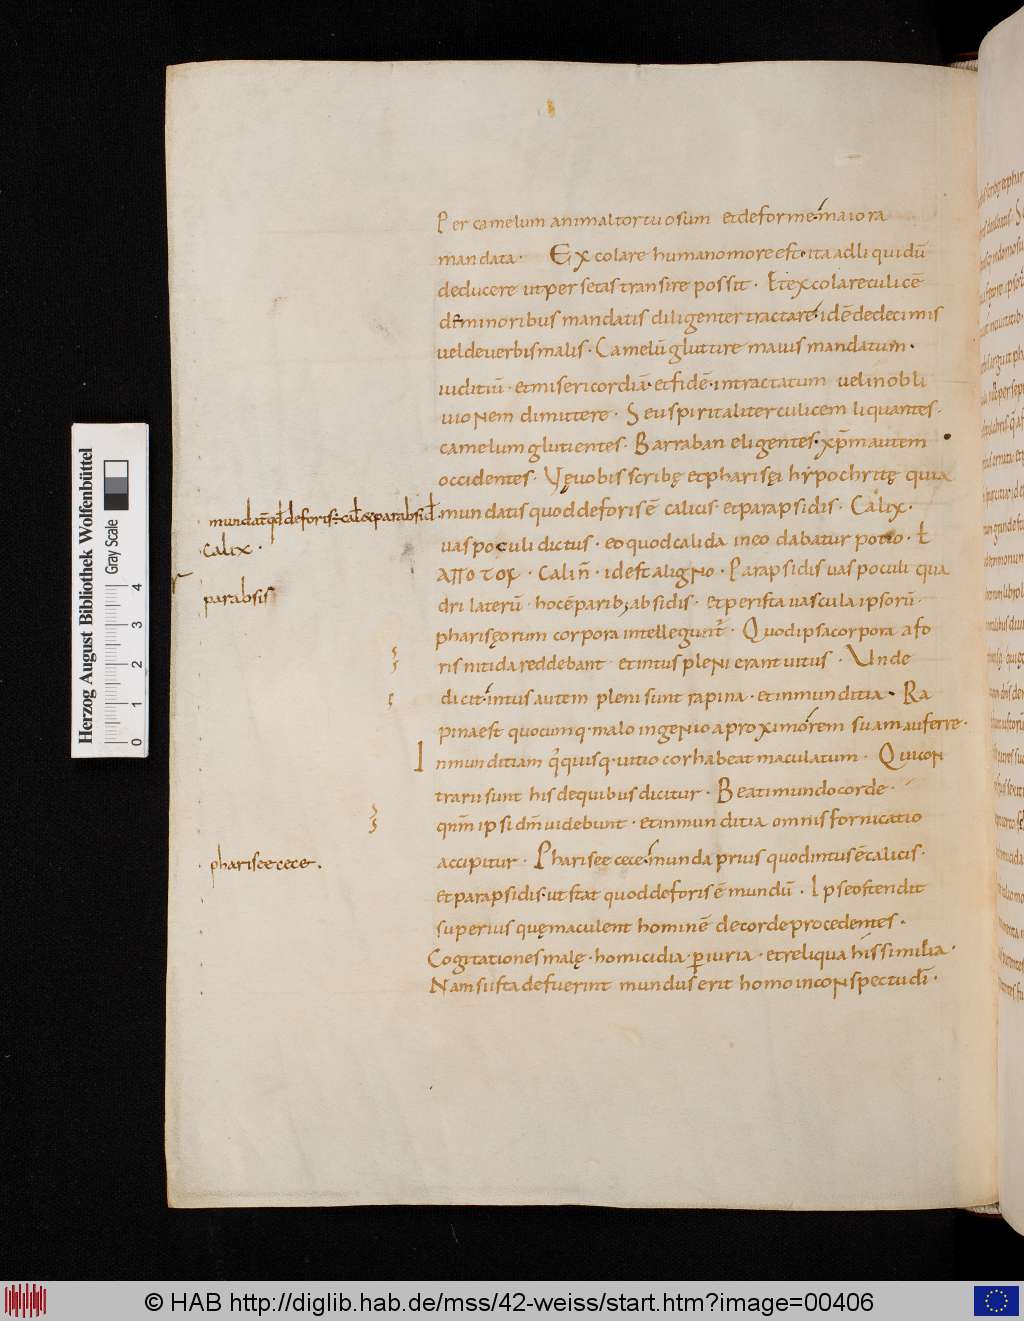 Per camelum animal tortuosum et deforme· maiora
mandata· Excolare humano more est· ita ad liquidū
deducere ut per setas transire possit· ł excolare culicē
de minoribus mandatis diligenter tractare· idē de decimis
vel de verbis malis· Camelū gluttire maius mandatum·
iuditiū· et misericordiā· et fidē· intractatum vel in obli
uionem dimittere· Seu spiritaliter culicem liquantes·
camelum glutientes· Barraban eligentes· xp̄m autem
occidentes· Vę uobis scribę et pharisęi hẏpochritę quia
mundatis quod deforis ē calicis et parapsidis· Calix·
uas poculi dictus· eo quod calida in eo dabatur potio· ł
ΑΠΟ ΤΟΥ· calin̄· id est a ligno· Parapsidis uas poculi qua
dri laterū· hoc ē parib; absidis· et per ista uascula ipsorū
pharisęorum corpora intelleguntᷣ· Quod ipsa corpora afo
ris nitida reddebant· et intus pleni erant uitus· Unde
dicit· intus autem pleni sunt rapina· et inmunditia· Ra
pina est quocumq· malo ingenio a proximo rem suam auferre·
Inmunditiam q̇quisq· uitio cor habeat maculatum· Qui con
trarii sunt his de quibus dicitur· Beati mundo corde·
qnm̄ ipsi dm̄ uidebunt· et inmunditia omnis fornicatio
accipitur· Pharisee cece· munda prius quod intus ē calicis·
et parapsidis· ut fiat quod deforis ē mundū· Ipse ostendit
superius quę maculent hominē de corde procedentes·
Cogitationes malę· homicidia· ꝑiuria· et reliqua his similia·
Nam si ista defuerint mundus erit homo in conspectu dī·
calix·
parabsis
pharisee cece·
Herzog August Bibliothek Wolfenbüttel
Gray Scale
0 1 2 3 4
© HAB http://diglib.hab.de/mss/42-weiss/start.htm?image=00406